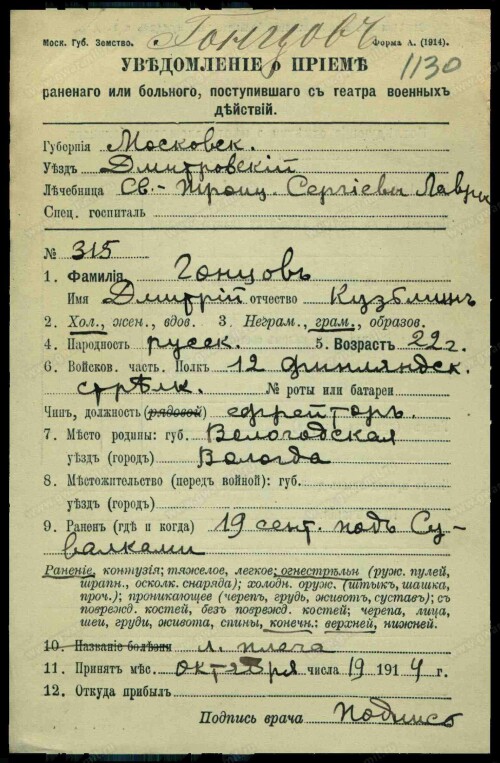 Моск. Губ. Земство. Гонцовъ Форма А. (1914).
УВѢДОМЛЕНІЕ о ПРІЕМѢ 1130
раненаго или больного, поступившаго съ театра военныхъ
дѣйствій.
Губернія Московск.
Уѣздъ Дмитровскій
Лѣчебница Св.-Троиц. Сергіевы Лавры
Спец. госпиталь
№ 315
1. Фамилія Гонцовъ
Имя Дмитрій отчество
2. Хол., жен., вдов. 3. Неграм., грам., образов.
4. Народность русск. 5. Возрастъ 22 г.
6. Войсков. часть. Полкъ 12 финляндск.
стрѣлк. № роты или батареи
Чинъ, должность (рядовой) ефрейторъ.
7. Мѣсто родины: губ. Вологодская
уѣздъ (городъ) Вологда
8. Мѣстожительство (передъ войной): губ.
уѣздъ (городъ)
9. Раненъ (гдѣ и когда) 19 сент. подъ Су-
валками
Раненіе, контузія; тяжелое, легкое; огнестрѣльн (руж. пулей,
шрапн., осколк. снаряда); холодн. оруж. (штыкъ, шашка,
проч.); проникающее (черепъ, грудь, животъ, суставъ); съ
поврежд. костей, безъ поврежд. костей; черепа, лица,
шеи, груди, живота, спины, конечн.: верхней, нижней.
10. Названіе болѣзни л. плеча
11. Принятъ мѣс. октября числа 19 1914 г.
12. Откуда прибылъ
Подпись врача Подпись